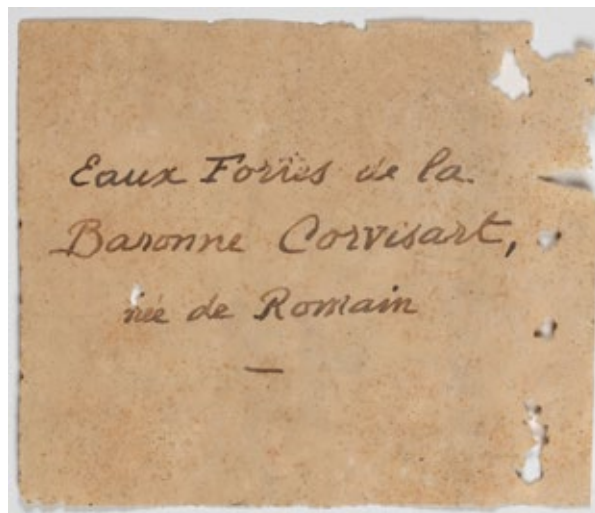 Eaux Fortes de la
Baronne Corvisart,
née de Romain